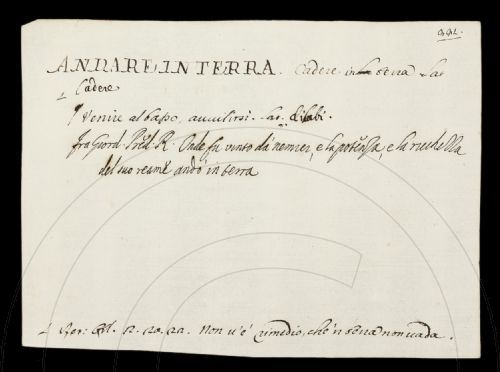 ANDARE IN TERRA. Cadere in terra. Lat.
Cadere
¶ Venire al basso, avvilirsi. Lat. dilabi.
fra Giord. Pred. R. Onde fu vinto da' nemici, e la potenza, e la
del suo reame andò in terra
Ber. Orl. 2. 20. 22. Non v'è rimedio, che 'n terra non vada.